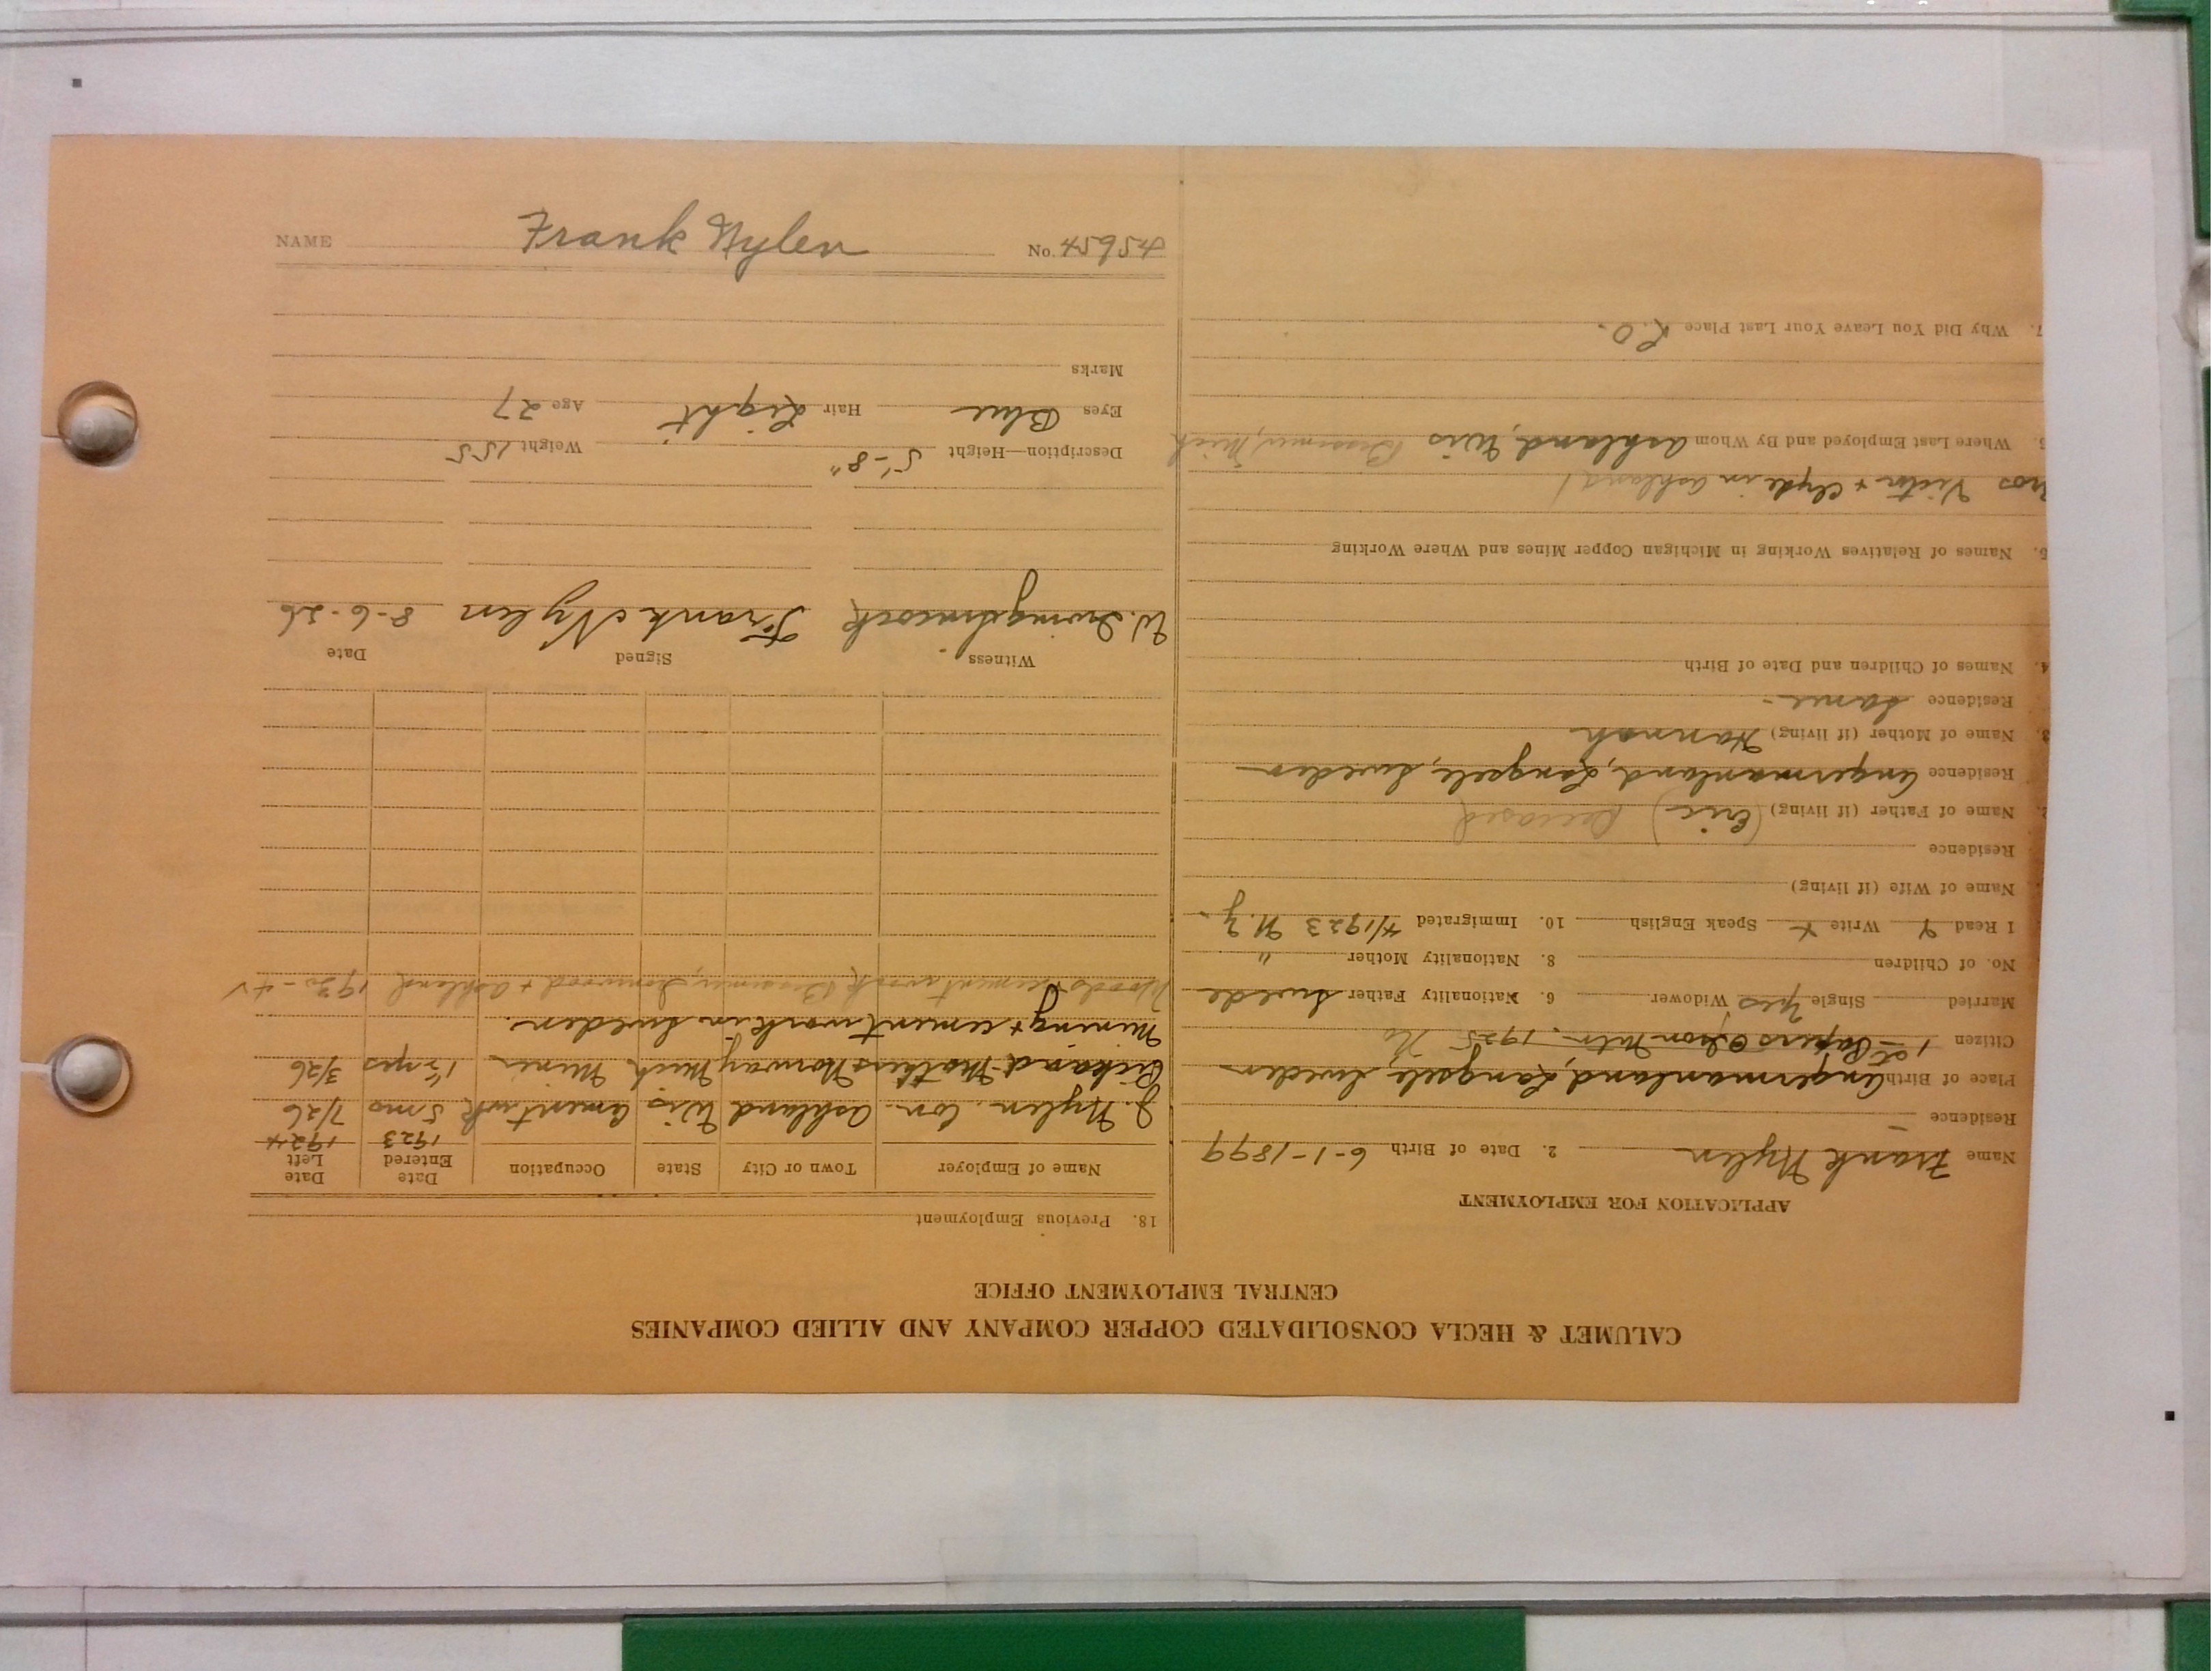 NAME Frank Nylen No. 45654
CALUMET & HECLA CONSOLIDATED COPPER COMPANY AND ALLIED COMPANIES
CENTRAL EMPLOYMENT OFFICE
APPLICATION FOR EMPLOYMENT
Name Frank Nylen 2. Date of Birth 6-1-1899
Residence
Place of Birth Angermanland, Langsele, Sweden
Citizen 1st Papers 1925 No
Married Single yes Widower 6. Nationality Father Swede
No. of Children 8. Nationality Mother "
1 Read Write x Speak English 10. Immigrated 4/1923 N.Y.
Name of Wife (if living)
Residence
Name of Father (if living) (Eric) Deceased
Residence Angermanland, Langsele, Sweden
3. Name of Mother (if living) Hannah
Residence Same
4. Names of Children and Date of Birth
5. Names of Relatives Working in Michigan Copper Mines and Where Working
Bros Victor + Clyde in Ashland
6. Where Last Employed and By Whom Ashland, Wis Bessemer, Mich
7. Why Did You Leave Your Last Place L.O.
18. Previous Employment
Name of Employer Town or City State Occupation Date Entered Date Left
1923 1924
J. Nylen Con. Ashland Wis Cement wk 5 mo 7/26
Mathers Norway Mich Miner yrs 3/26
Mining + cement work in Sweden.
Woods + cement work Bessemer, Ironwood + Ashland 1930 - 42
Witness Signed Date
W. Frank Nylen 8-6-26
Description—Height 5'-8" Weight 155
Eyes Blue Hair Light Age 27
Marks